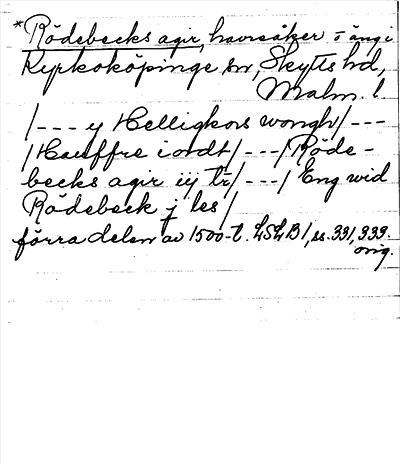 *Rödebecks agir, havreåker o äng i
Kyrkoköpinge sn, Skytts hd,
Malm. l
/--- y Helligkors wongh/---
/Hauffre iordt/---/Röde-
becks agir iij tr/---/ Eng wid
Rödebeck j les/
förra delen av 1500-t. LSLB / ss. 331, 333.
orig.